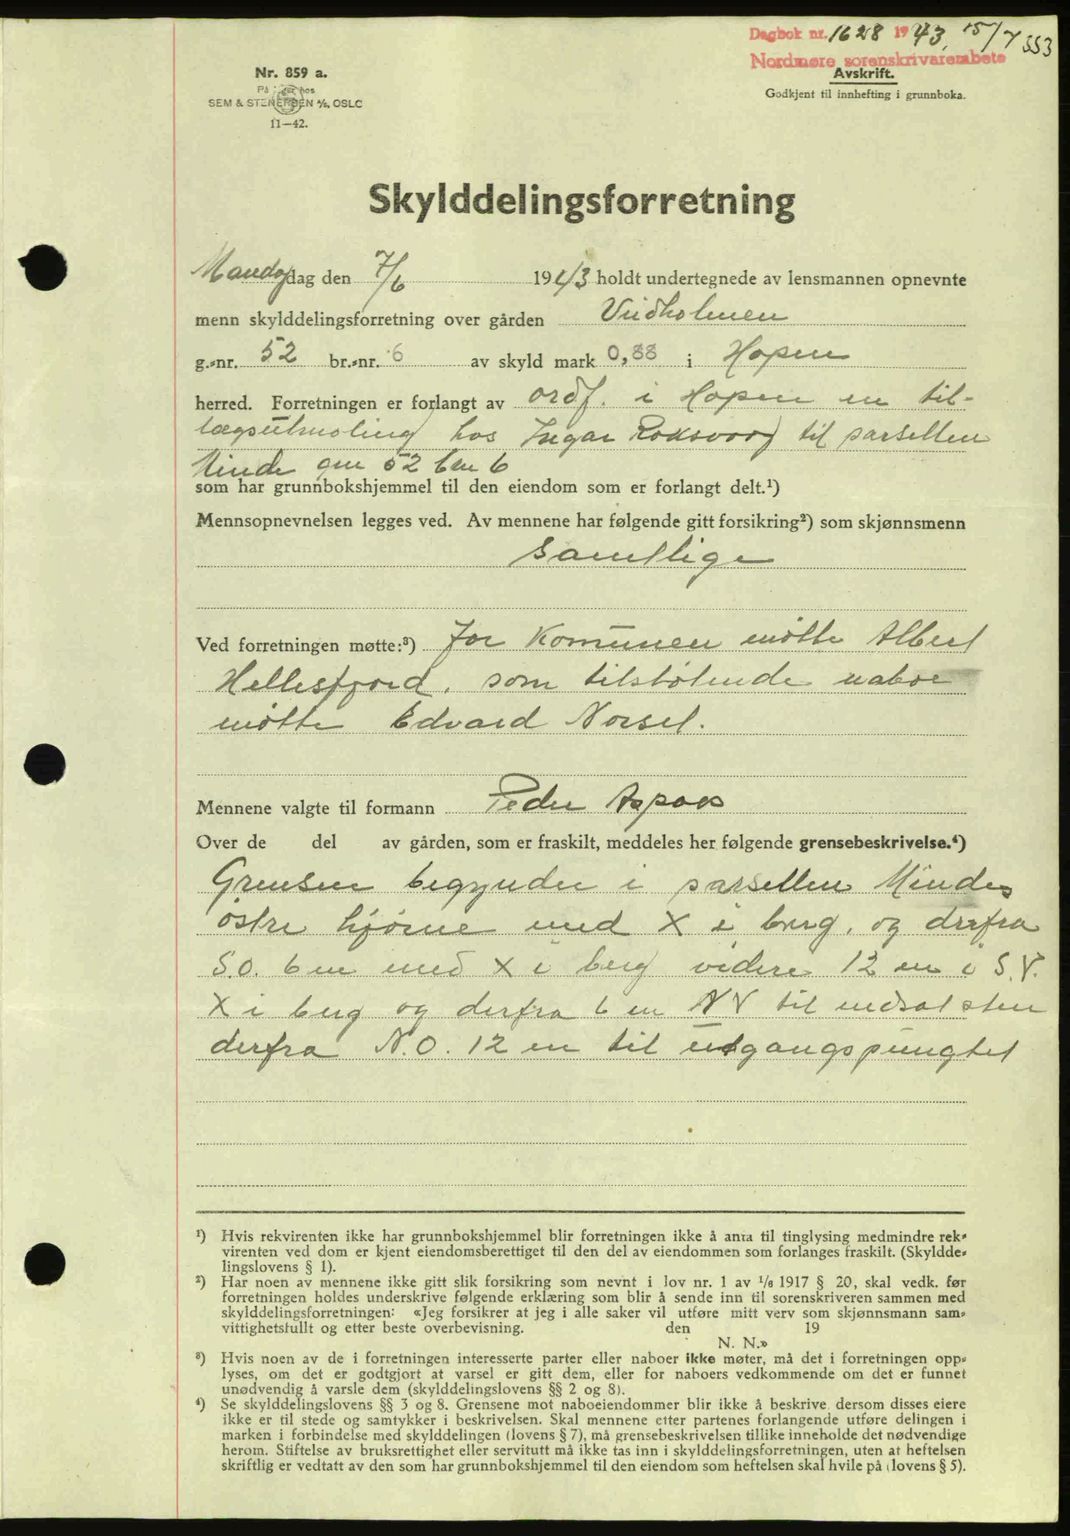 Dagbok nr. 1628 1943, 15/7 553
Nordmøre sorenskriverembete
Nr. 859 a.
Avskrift.
SEM & STENERSEN A/S, OSLO
Godkjent til innhefting i grunnboka.
11—42.
Skylddelingsforretning
Mandag dag den 7/6 1943 holdt undertegnede av lensmannen opnevnte
menn skylddelingsforretning over gården Vridholmen
g.-nr. 52 br.-nr. 6 av skyld mark 0,88 i Hopen
herred. Forretningen er forlangt av ordf. i Hopen en til-
lægsutmoling hos Ingar Roksvoog til parsellen
Minde gnr 52 bnr 6
som har grunnbokshjemmel til den eiendom som er forlangt delt.¹)
Mennsopnevnelsen legges ved. Av mennene har følgende gitt forsikring²) som skjønnsmenn
samtlige
Ved forretningen møtte:³) For Komunen møtte Albert
Hellesfjord, som tilstøtende naboe
møtte Edvard Norset.
Mennene valgte til formann Peder Aspaas
Over de del av gården, som er fraskilt, meddeles her følgende grensebeskrivelse.⁴)
Grensen begynder i parsellen Mindes
østre hjørne med X i berg, og derfra
S.O. 6 m med X i berg videre 12 m i S.V.
X i berg og derfra 6 m N V til nedsat sten
derfra N.O. 12 m til utgangspungtet
¹) Hvis rekvirenten ikke har grunnbokshjemmel blir forretningen ikke å anta til tinglysing medmindre rek-
virenten ved dom er kjent eiendomsberettiget til den del av eiendommen som forlanges fraskilt. (Skyldde-
lingslovens § 1).
²) Har noen av mennene ikke gitt slik forsikring som nevnt i lov nr. 1 av 1/6 1917 § 20, skal vedk. før
forretningen holdes underskrive følgende erklæring som blir å sende inn til sorenskriveren sammen med
skylddelingsforretningen: «Jeg forsikrer at jeg i alle saker vil utføre mitt verv som skjønnsmann sam-
vittighetsfullt og etter beste overbevisning. den 19
N. N.»
³) Hvis noen av de i forretningen interesserte parter eller naboer ikke møter, må det i forretningen opp-
lyses, om det er godtgjort at varsel er gitt dem, eller for naboers vedkommende om det er funnet
unødvendig å varsle dem (skylddelingslovens §§ 2 og 8).
⁴) Se skylddelingslovens §§ 3 og 8. Grensene mot naboeiendommer blir ikke å beskrive dersom disses eiere
ikke er til stede og samtykker i beskrivelsen. Skal mennene etter partenes forlangende utføre delingen i
marken i forbindelse med skylddelingen (lovens § 7), må grensebeskrivelsen tillike inneholde det nødvendige
herom. Stiftelse av bruksrettighet eller servitutt må ikke tas inn i skylddelingsforretningen, uten at heftelsen
skriftlig er vedtatt av den som har grunnbokshjemmel til den eiendom som heftelsen skal hvile på (lovens § 5).